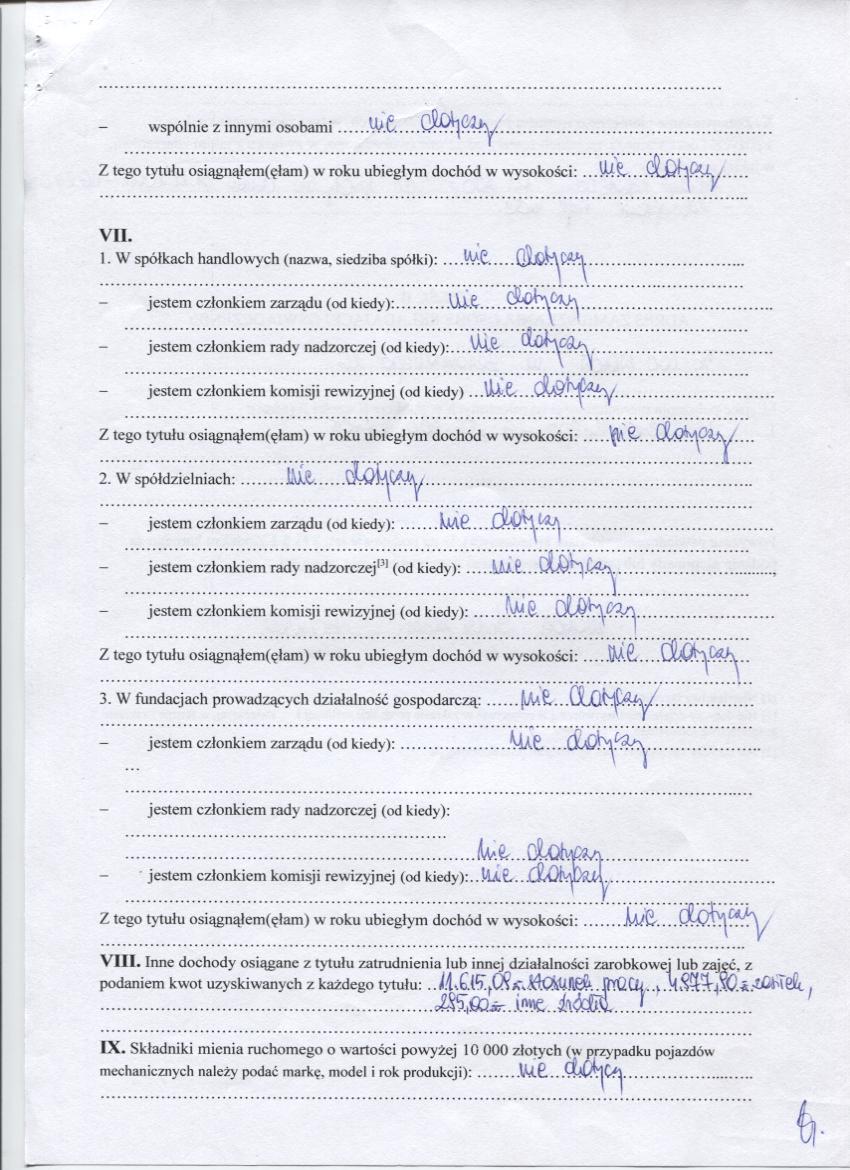 – wspólnie z innymi osobami nie dotyczy
Z tego tytułu osiągnąłem(ęłam) w roku ubiegłym dochód w wysokości: nie dotyczy
VII.
1. W spółkach handlowych (nazwa, siedziba spółki): nie dotyczy
– jestem członkiem zarządu (od kiedy): nie dotyczy
– jestem członkiem rady nadzorczej (od kiedy): nie dotyczy
– jestem członkiem komisji rewizyjnej (od kiedy) nie dotyczy
Z tego tytułu osiągnąłem(ęłam) w roku ubiegłym dochód w wysokości: nie dotyczy
2. W spółdzielniach: nie dotyczy
– jestem członkiem zarządu (od kiedy): nie dotyczy
– jestem członkiem rady nadzorczej[3] (od kiedy): nie dotyczy
– jestem członkiem komisji rewizyjnej (od kiedy): nie dotyczy
Z tego tytułu osiągnąłem(ęłam) w roku ubiegłym dochód w wysokości: nie dotyczy
3. W fundacjach prowadzących działalność gospodarczą: nie dotyczy
– jestem członkiem zarządu (od kiedy): nie dotyczy
– jestem członkiem rady nadzorczej (od kiedy):
nie dotyczy
– jestem członkiem komisji rewizyjnej (od kiedy): nie dotyczy
Z tego tytułu osiągnąłem(ęłam) w roku ubiegłym dochód w wysokości: nie dotyczy
VIII. Inne dochody osiągane z tytułu zatrudnienia lub innej działalności zarobkowej lub zajęć, z
podaniem kwot uzyskiwanych z każdego tytułu: 11.615,08 stosunek pracy, 4877,80 zasiłek,
285,00 inne źródła
IX. Składniki mienia ruchomego o wartości powyżej 10 000 złotych (w przypadku pojazdów
mechanicznych należy podać markę, model i rok produkcji): nie dotyczy